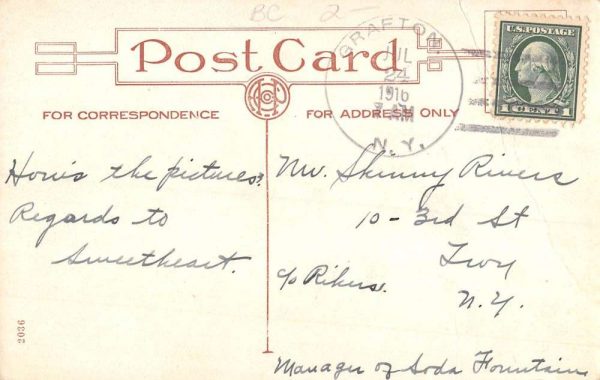 BC 2-
Post Card
GRAFTON
JUL
24
1916
AM
N.Y.
U.S. POSTAGE
1 CENT 1
FOR CORRESPONDENCE
FOR ADDRESS ONLY
How's the pictures?
Regards to
Sweetheart.
Mr. Skinny Rivers
10-3rd St
Troy
c/o Rikers.
N.Y.
Manager of Soda Fountain
2036